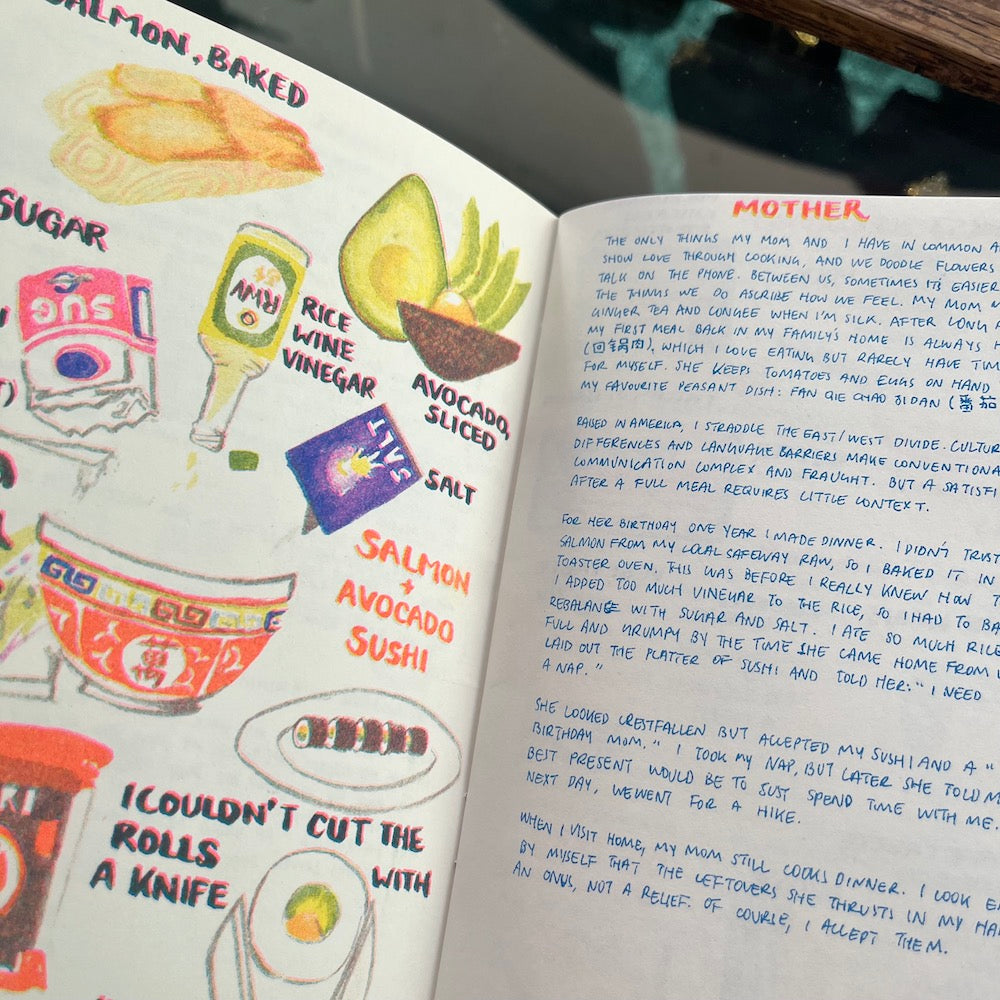 SALMON, BAKED
SUGAR
SUG
RWV
RICE
WINE
VINEGAR
AVOCADO,
SLICED
SALT
SALT
SALMON
+
AVOCADO
SUSHI
I COULDN'T CUT THE
ROLLS
WITH
A KNIFE
MOTHER
THE ONLY THINGS MY MOM AND I HAVE IN COMMON
SHOW LOVE THROUGH COOKING, AND WE DOODLE FLOWERS
TALK ON THE PHONE. BETWEEN US, SOMETIMES IT'S EASIER
THE THINGS WE DO ASCRIBE HOW WE FEEL. MY MOM
GINGER TEA AND CONGEE WHEN I'M SICK. AFTER LONG
MY FIRST MEAL BACK IN MY FAMILY'S HOME IS ALWAYS
(回锅肉), WHICH I LOVE EATING BUT RARELY HAVE
FOR MYSELF. SHE KEEPS TOMATOES AND EGGS ON HAND
MY FAVOURITE PEASANT DISH: FAN QIE CHAO JI DAN (番茄
RAISED IN AMERICA, I STRADDLE THE EAST/WEST DIVIDE.
DIFFERENCES AND LANGUAGE BARRIERS MAKE
COMMUNICATION COMPLEX AND FRAUGHT. BUT A
AFTER A FULL MEAL REQUIRES LITTLE CONTEXT.
FOR HER BIRTHDAY ONE YEAR I MADE DINNER. I DIDN'T TRUST
SALMON FROM MY LOCAL SAFEWAY RAW, SO I BAKED IT IN
TOASTER OVEN. THIS WAS BEFORE I REALLY KNEW HOW
I ADDED TOO MUCH VINEGAR TO THE RICE, SO I HAD TO
REBALANCE WITH SUGAR AND SALT. I ATE SO MUCH RICE
FULL AND GRUMPY BY THE TIME SHE CAME HOME FROM
LAID OUT THE PLATTER OF SUSHI AND TOLD HER: "I NEED
A NAP."
SHE LOOKED CRESTFALLEN BUT ACCEPTED MY SUSHI AND A "
BIRTHDAY MOM." I TOOK MY NAP, BUT LATER SHE TOLD
BEST PRESENT WOULD BE TO JUST SPEND TIME WITH ME.
NEXT DAY, WE WENT FOR A HIKE.
WHEN I VISIT HOME, MY MOM STILL COOKS DINNER. I COOK
BY MYSELF THAT THE LEFTOVERS SHE THRUSTS IN MY
AN ONUS, NOT A RELIEF. OF COURSE, I ACCEPT THEM.